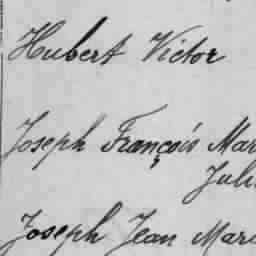 Hubert Victor
Joseph François Mar
Jule
Joseph Jean Mari